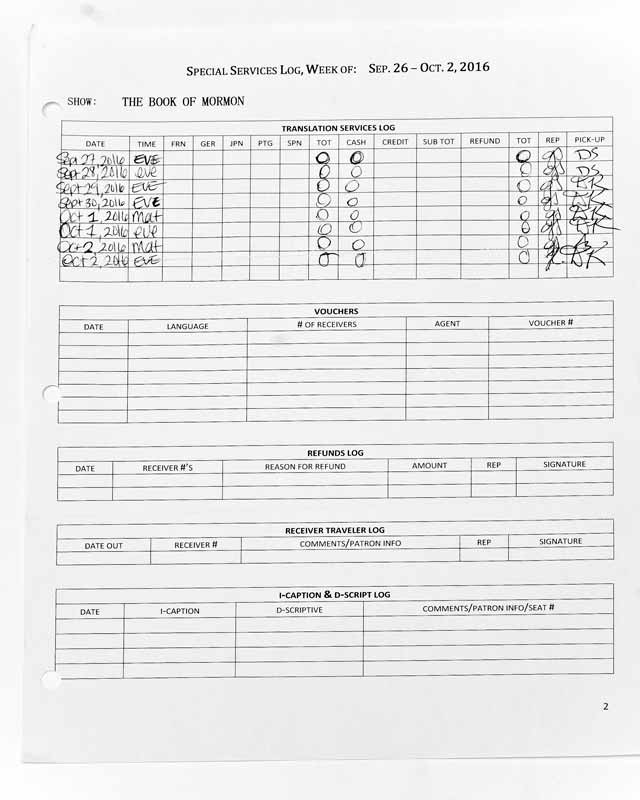 SPECIAL SERVICES LOG, WEEK OF: SEP. 26 – OCT. 2, 2016
SHOW: THE BOOK OF MORMON
TRANSLATION SERVICES LOG
DATE TIME FRN GER JPN PTG SPN TOT CASH CREDIT SUB TOT REFUND TOT REP PICK-UP
Sept 27, 2016 EVE 0 0 0 DS
Sept 28, 2016 eve 0 0 0 DS
Sept 29, 2016 EVE 0 0 0
Sept 30, 2016 EVE 0 0 0
Oct 1, 2016 Mat 0 0 0
Oct 1, 2016 eve 0 0 0
Oct 2, 2016 Mat 0 0 0
Oct 2, 2016 EVE 0 0 0
VOUCHERS
DATE LANGUAGE # OF RECEIVERS AGENT VOUCHER #
REFUNDS LOG
DATE RECEIVER #'S REASON FOR REFUND AMOUNT REP SIGNATURE
RECEIVER TRAVELER LOG
DATE OUT RECEIVER # COMMENTS/PATRON INFO REP SIGNATURE
I-CAPTION & D-SCRIPT LOG
DATE I-CAPTION D-SCRIPTIVE COMMENTS/PATRON INFO/SEAT #
2